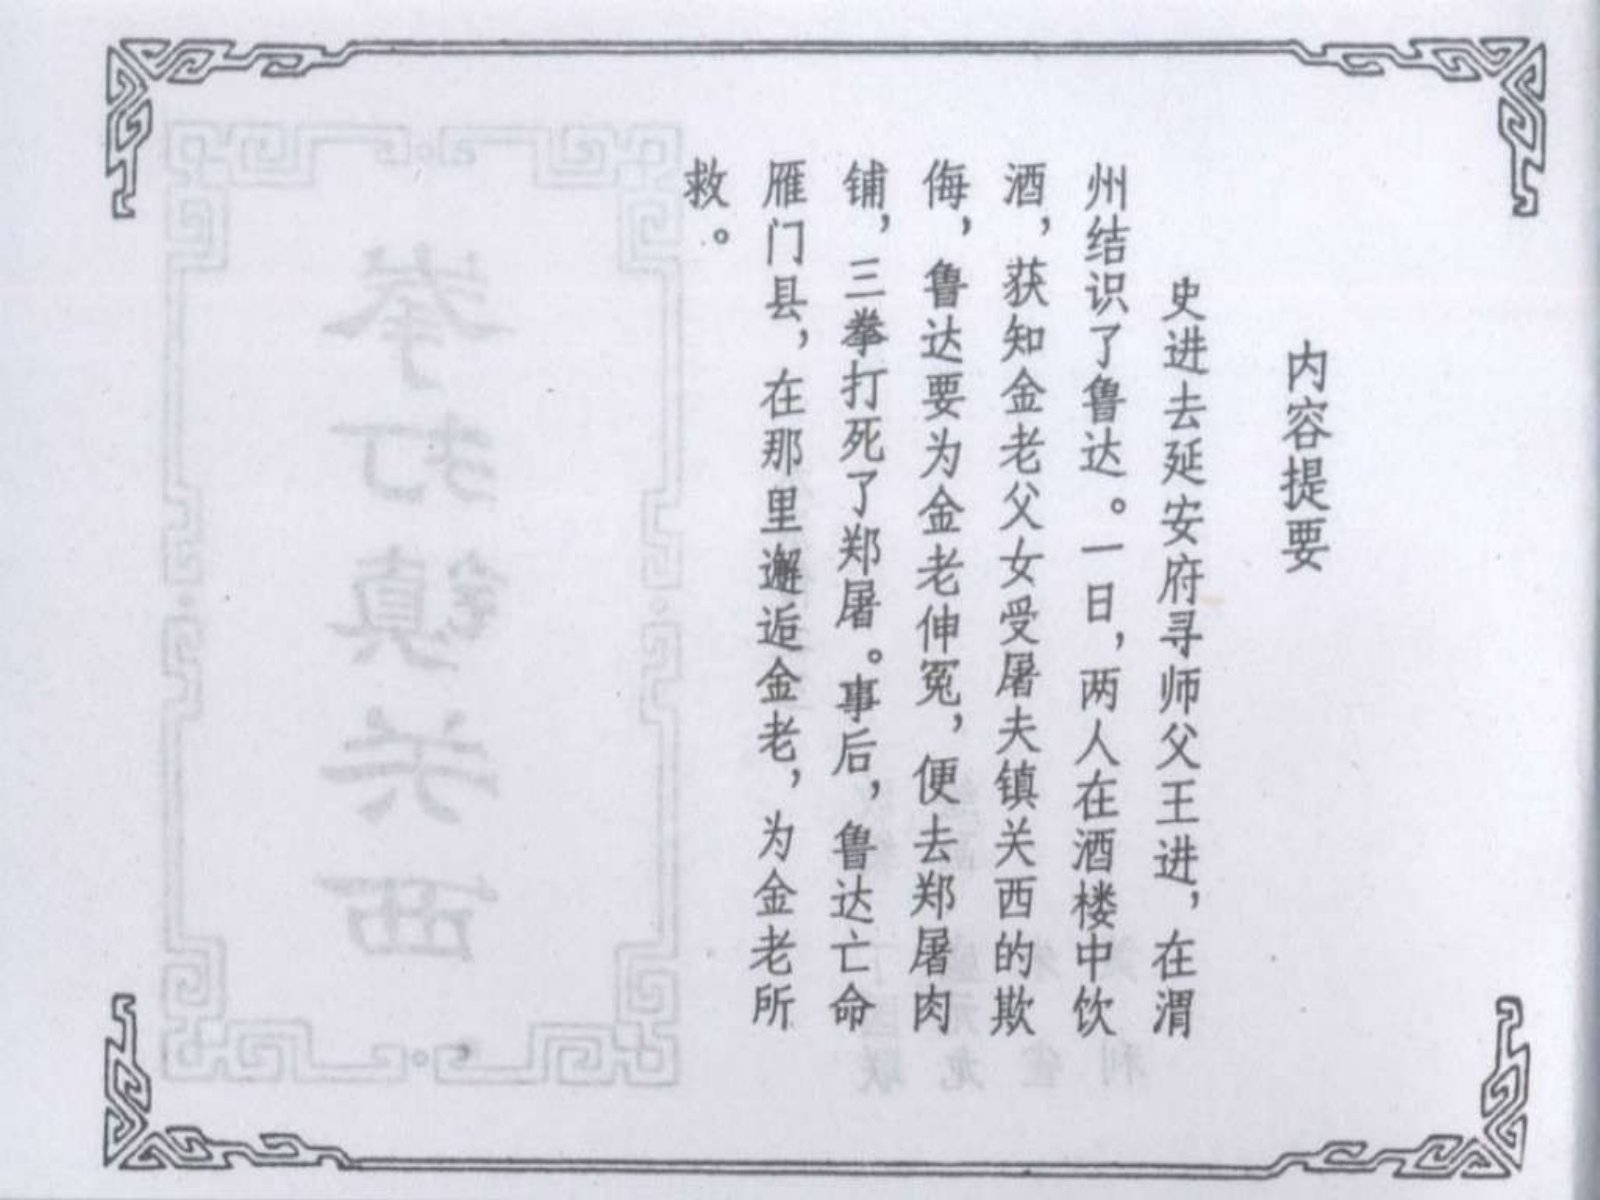 内容提要
史进去延安府寻师父王进，在渭
州结识了鲁达。一日，两人在酒楼中饮
酒，获知金老父女受屠夫镇关西的欺
侮，鲁达要为金老伸冤，便去郑屠肉
铺，三拳打死了郑屠。事后，鲁达亡命
雁门县，在那里邂逅金老，为金老所
救。
拳打镇关西